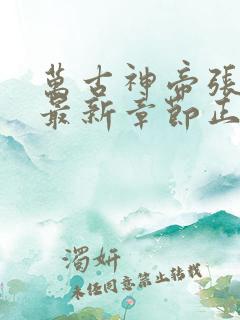 萬古神帝張
最新章節正
濁妍
未经同意禁止转载